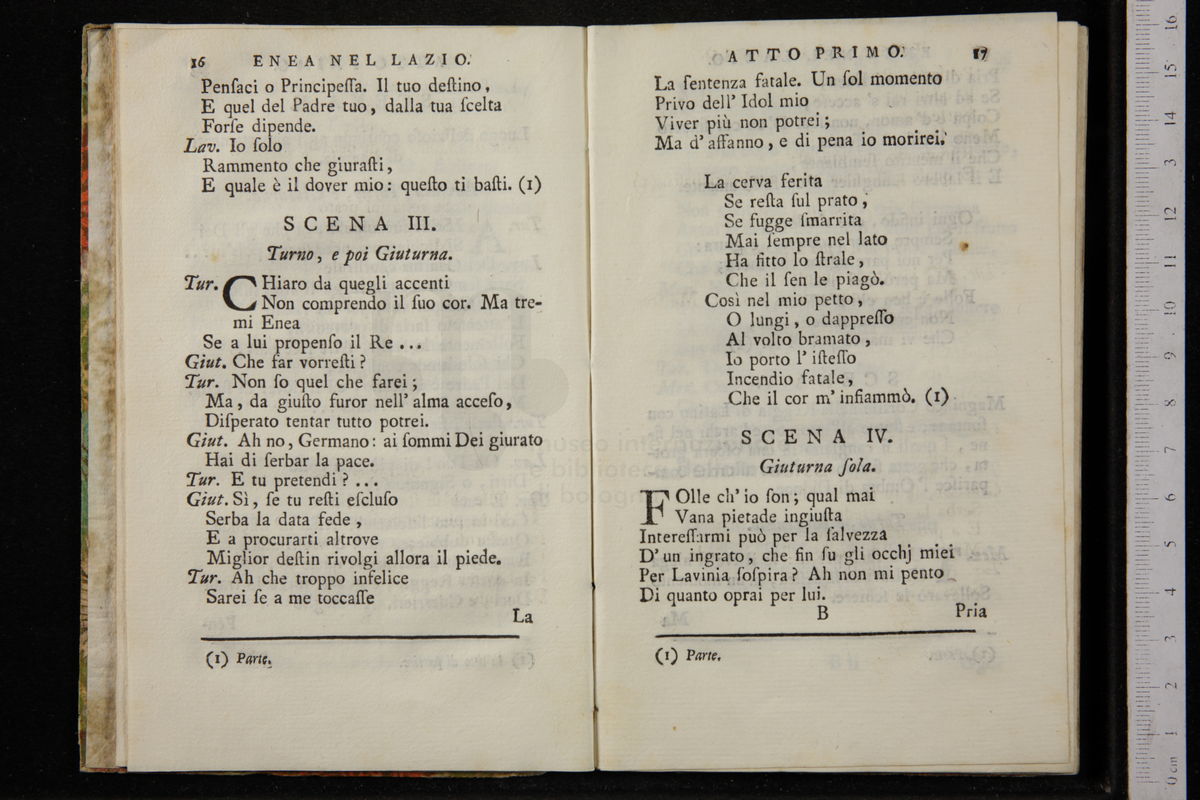 16 ENEA NEL LAZIO.
Penſaci o Principeſſa. Il tuo deſtino,
E quel del Padre tuo, dalla tua ſcelta
Forſe dipende.
Lav. Io ſolo
Rammento che giuraſti,
E quale è il dover mio: queſto ti baſti. (1)
SCENA III.
Turno, e poi Giuturna.
Tur. CHiaro da quegli accenti
Non comprendo il ſuo cor. Ma tre-
mi Enea
Se a lui propenſo il Re ...
Giut. Che far vorreſti?
Tur. Non ſo quel che farei;
Ma, da giuſto furor nell' alma acceſo,
Diſperato tentar tutto potrei.
Giut. Ah no, Germano: ai ſommi Dei giurato
Hai di ſerbar la pace.
Tur. E tu pretendi? ...
Giut. Sì, ſe tu reſti eſcluſo
Serba la data fede,
E a procurarti altrove
Miglior deſtin rivolgi allora il piede.
Tur. Ah che troppo infelice
Sarei ſe a me toccaſſe
La
(1) Parte.
ATTO PRIMO. 17
La ſentenza fatale. Un ſol momento
Privo dell' Idol mio
Viver più non potrei;
Ma d' affanno, e di pena io morirei.
La cerva ferita
Se reſta ſul prato,
Se fugge ſmarrita
Mai ſempre nel lato
Ha fitto lo ſtrale,
Che il ſen le piagò.
Così nel mio petto,
O lungi, o dappreſſo
Al volto bramato,
Io porto l' iſteſſo
Incendio fatale,
Che il cor m' infiammò. (1)
SCENA IV.
Giuturna ſola.
FOlle ch' io ſon; qual mai
Vana pietade ingiuſta
Intereſſarmi può per la ſalvezza
D' un ingrato, che fin ſu gli occhj miei
Per Lavinia ſoſpira? Ah non mi pento
Di quanto oprai per lui.
B Pria
(1) Parte.
16
15
14
13
12
11
10
9
8
7
6
5
4
3
2
1
0 cm